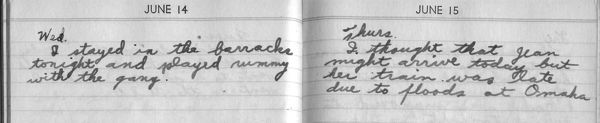 JUNE 14
Wed.
I stayed in the barracks
tonight and played rummy
with the gang.
JUNE 15
Thurs.
I thought that Jean
might arrive today but
her train was late
due to floods at Omaha